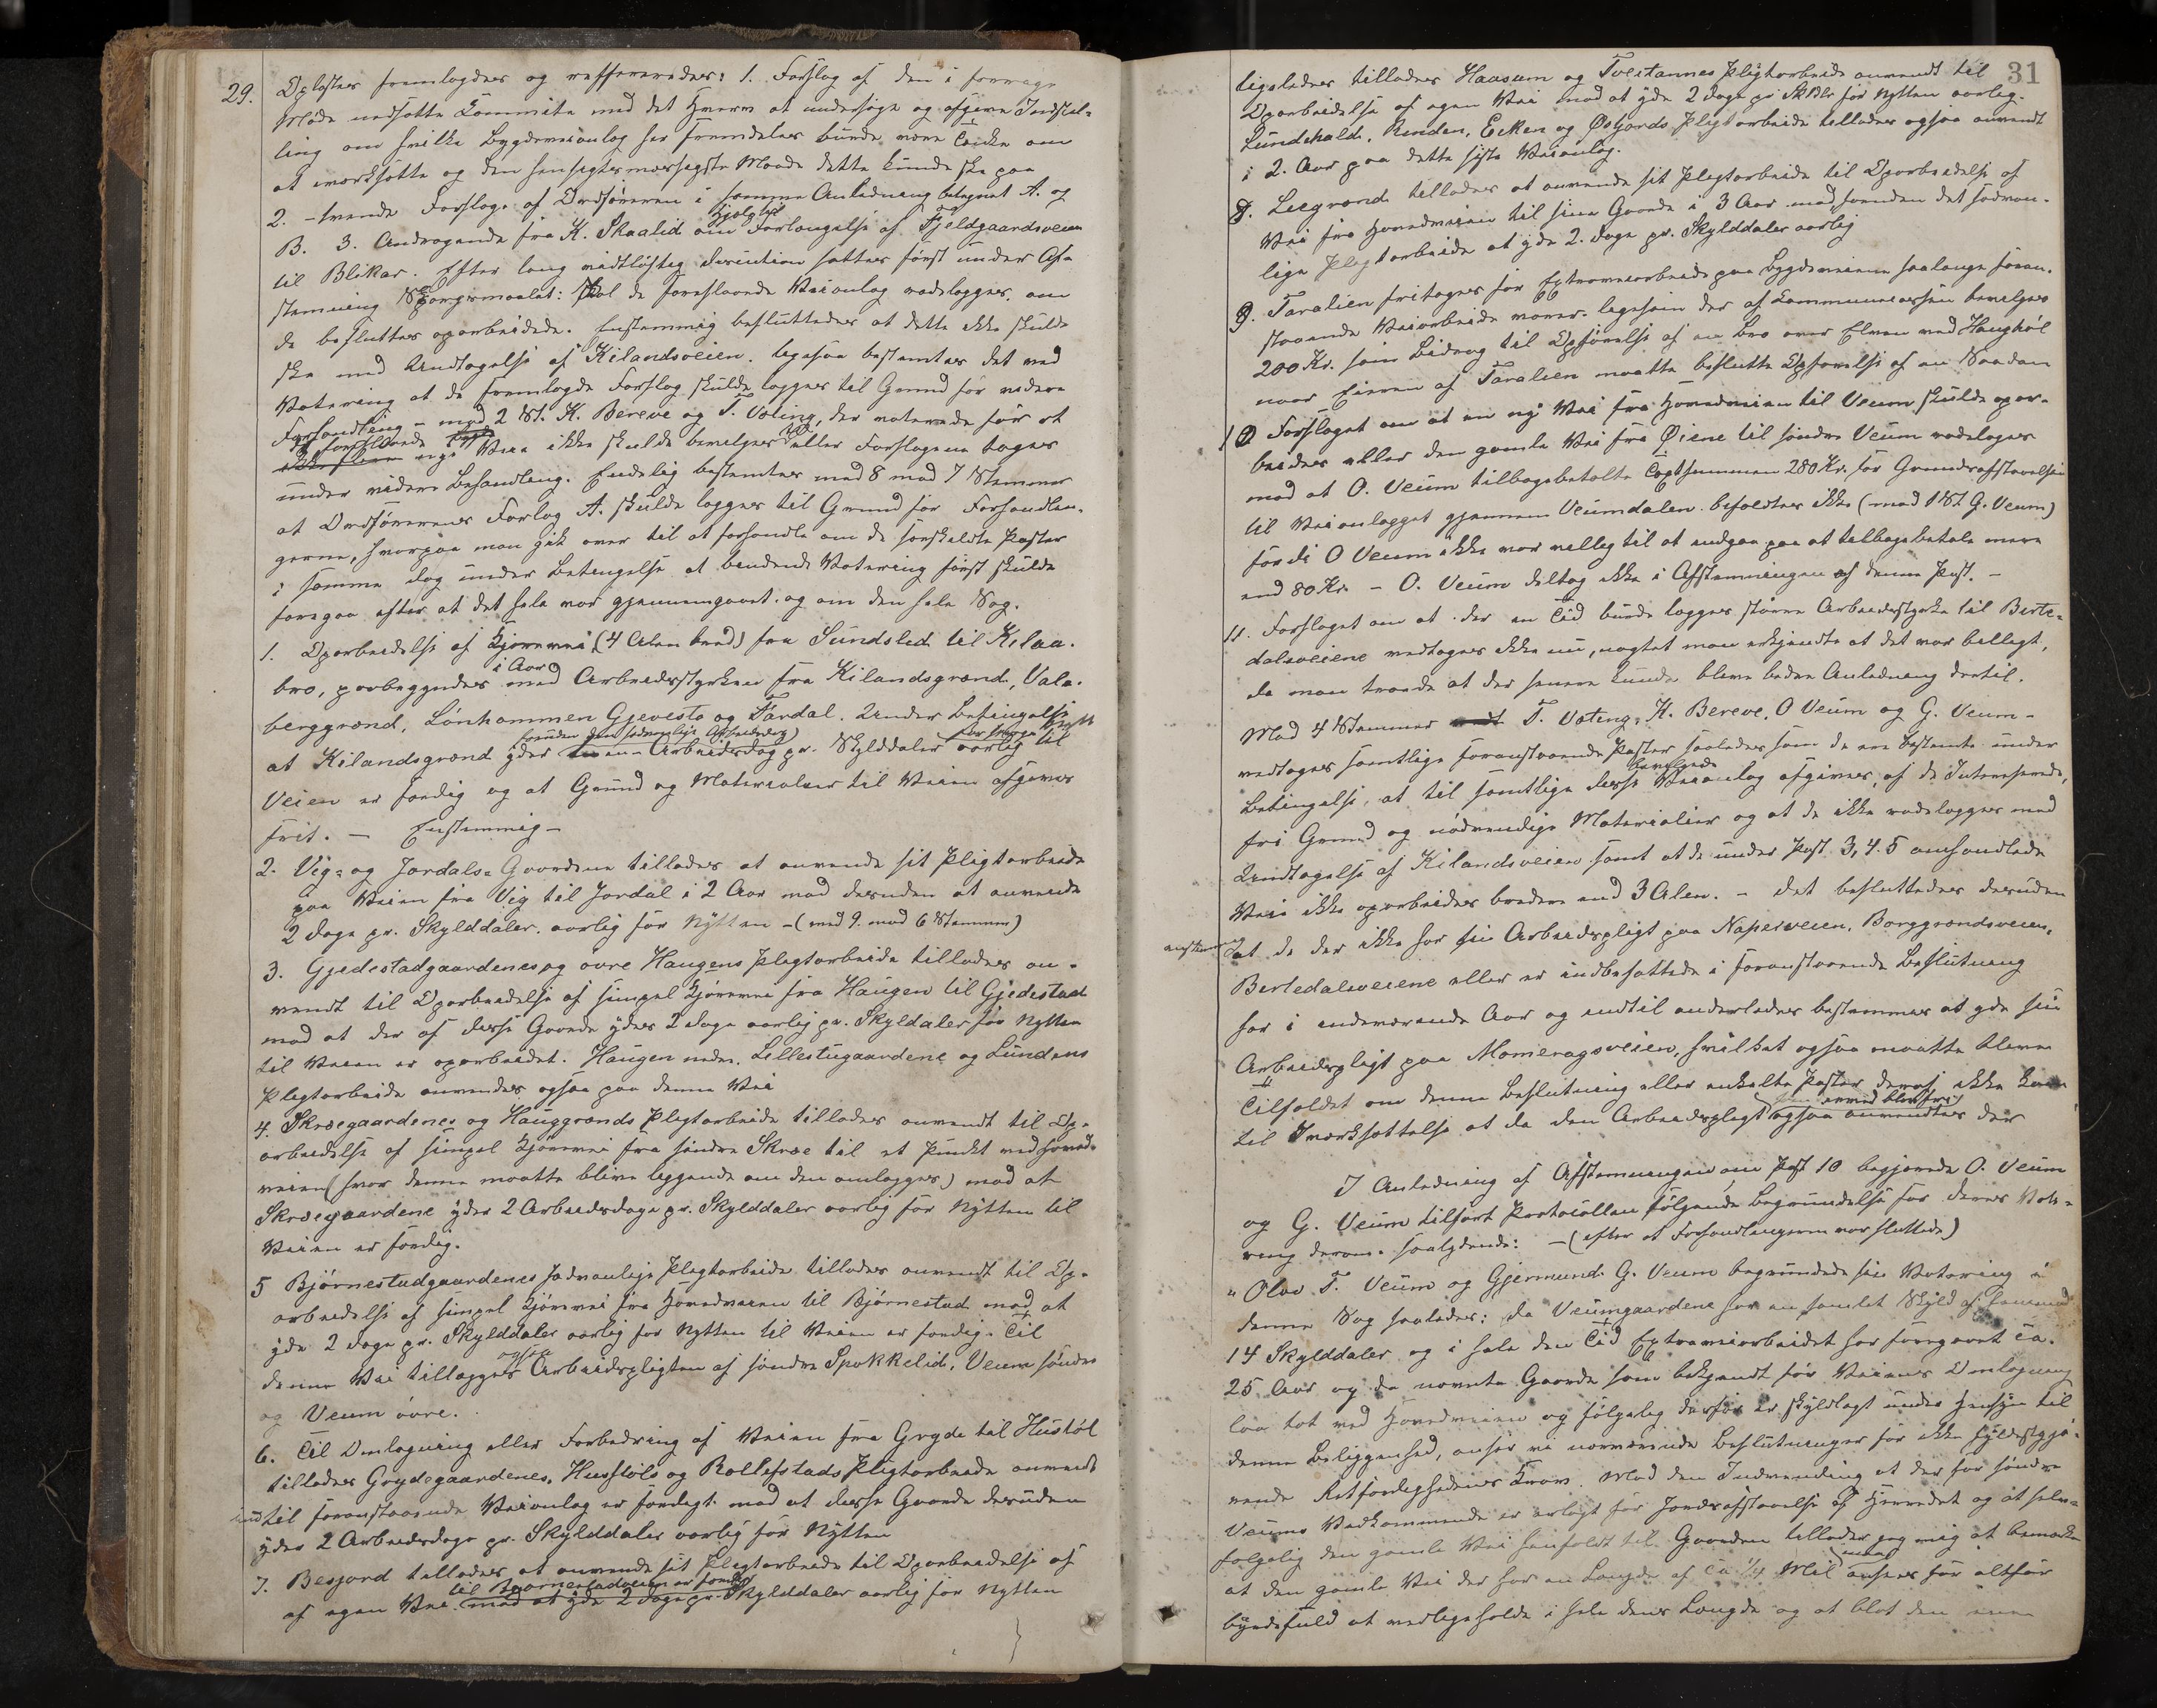 29. Oplæstes fremlagdes og reffereredes: 1. Forslag af den i forrige
Møde nedsatte Committe med det Hverv at undersøge og afgive Indstil-
ling om hvilke Bygdeveianlæg her fremdeles burde være Tanke om
at iværksætte og den hensigtsmæssigste Maade dette kunde ske paa
2. - tvende Forslage af Ordføreren i samme Anledning betegnet A. og
B. 3. Andragende fra K. Skaalid om Forlængelse af Fjeldgaardsveien
til Blikar. Efter lang vidtløftig Discution sattes først under Af-
stemning Spørgsmaalet: Skal de foreslaaede Veianlæg rodelægges, om
de besluttes oparbeidede. Enstemmig besluttedes at dette ikke skulde
ske med Undtagelse af Kilandsveien. ligesaa bestemtes det ved
Votering at de fremlagde Forslag skulde lægges til Grund for videre
Forhandling - mod 2 St. K. Bereve og T. Vøting, der voterede for at
de foreslaaede nye Veie ikke skulde bevilges eller Forslagene tages
under videre Behandling. Endelig bestemtes med 8 mod 7 Stemmer
at Ordførerenes Forlag A. skulde lægges til Grund for Forhandlin-
gerne, hvorpaa man gik over til at forhandle om de forskjeldte Poster
i samme dog under Betingelse at bindende Votering først skulde
foregaa efter at det hele var gjennemgaaet og om den hele Sag.
1. Oparbeidelse af Kjørevei (4 Alen bred) fra Sundslid til Kilaa-
bro, paabegyndes i Aar med Arbeidsstyrken fra Kilandsgrænd, Vala-
berggrænd, Lønhommen Gjevesto og Tårdal. Under Betingelse
at Kilandsgrænd yder foruden den sædvanlige en Arbeidsdag pr. Skylddaler aarlig til
Veien er færdig og at Grund og Materialier til Veien afgives
frit. - Enstemmig -
2. Vig- og Jordals-Gaardene tillades at anvende sit Pligtarbeide
paa Veien fra Vig til Jordal i 2 Aar mod desuden at anvende
2 Dage pr. Skylddaler aarlig for Nytten - (med 9 mod 6 Stemmer)
3. Gjedestadgaardenes og øvre Haugens Pligtarbeide tillades an-
vendt til Oparbeidelse af simpel Kjørevei fra Haugen til Gjedestad
mod at der af disse Gaarde ydes 2 Dage aarlig pr. Skyldaler for Nytten
til Veien er oparbeidet. Haugen nedr. Lillestugaardene og Lundens
Pligtarbeide anvendes ogsaa paa denne Vei
4. Skræegaardenes og Hauggrænds Pligtarbeide tillades anvendt til Op-
arbeidelse af simpel Kjørevei fra søndre Skræe til et Punkt ved Hoved-
veien (hvor denne maatte blive liggende om den omlægges) mod at
Skræegaardene yder 2 Arbeidsdage pr. Skylddaler aarlig for Nytten til
Veien er færdig.
5 Bjørnestadgaardenes sædvanlige Pligtarbeide tillades anvendt til Op-
arbeidelse af simpel Kjørevei fra Hovedveien til Bjørnestad mod at
yde 2 Dage pr. Skylddaler aarlig for Nytten til Veien er færdig. Til
denne Vei tillægges ogsaa Arbeidspligten af søndre Spokkelid, Veum søndre
og Veum øvre.
6. Til Omlægning eller Forbedring af Veien fra Gryde til Hustøl
tillades Grydegaardenes, Husstøls og Rollefstads Pligtarbeide anvendt
indtil foranstaaende Veianlæg er færdigt mod at disse Gaarde desuden
yder 2 Arbeidsdage pr. Skylddaler aarlig for Nytten
7. Besjord tillades at anvende sit Pligtarbeide til Oparbeidelse af
af egen Vei til Bjørnestadveien er færdig mod at yde 2 Dage pr. Skylddaler aarlig for Nytten
31
ligeledes tillades Haasum og Tveitannes Pligtarbeide anvendt til
Oparbeidelse af egen Vei mod at yde 2 Dage pr SkDlr for Nytten aarlig.
Lundehald, Renden, Eeken og Østjords Pligtarbeide tillades ogsaa anvendt
i 2. Aar paa dette sidste Veianlæg.
8. Liegrænd tillades at anvende sit Pligtarbeide til Oparbeidelse af
Vei fra Hovedveien til sine Gaarde i 3 Aar mod foruden det sædvan-
lige Pligtarbeide at yde 2. Dage pr. Skylddaler aarlig
9. Taralien fritages for Extraveiarbeide paa Bygdeveiene saalænge foran-
staaende Veiarbeide varer, ligesom der af Kommunecassen bevilges
200 Kr. som Bidrag til Opførelse af en Bro over Elven ved Haughøl
naar Eieren af Taralien maatte beslutte Opførelse af en Saadan
10 Forslaget om at en ny Vei fra Hovedveien til Veum skulde opar-
beides eller den gamle Vei fra Øiene til søndre Veum rodelægges
mod at O. Veum tilbagebetalte Taxtsummen 280 Kr. for Grundafstaaelsen
til Veianlægget gjennem Veumdalen bifaldtes ikke (mod 1 St. G. Veum)
fordi O Veum ikke var villig til at indgaa paa at tilbagebetale mere
end 80 Kr. - O. Veum deltog ikke i Afstemningen af denne Post. -
11. Forslaget om at der en Tid burde lægges større Arbeidsstyrke til Birte-
dalsveiene vedtoges ikke nu, uagtet man erkjendte at det var billigt,
da man troede at der senere kunde blive bedre Anledning dertil.
Mod 4 Stemmer T. Vøting, K. Bereve, O Veum og G. Veum -
vedtoges samtlige foranstaaende Poster saaledes som de ere bestemte under
Betingelse, at til samtlige disse bevilgede Veianlæg afgives, af de Interesserede,
fri Grund og nødvendige Materialier og at de ikke rodelægges med
Undtagelse af Kilandsveien samt at de under Post 3, 4. 5 omhandlede
Veie ikke oparbeides bredere end 3 Alen. - Det besluttedes desuden
enstemmig at de der ikke har sin Arbeidspligt paa Naperveien, Borggrændsveien,
Birtedalsveiene eller er indbefattede i foranstaaende Beslutning
har i indeværende Aar og indtil anderledes bestemmes at yde sin
Arbeidspligt paa Momeragsveien, hvilket ogsaa maatte blive
Tilfældet om denne Beslutning eller enkelte Poster deraf ikke kom
til Iværksættelse at da den Arbeidspligt ogsaa anvendtes der
I Anledning af Afstemningen om Post 10 begjærede O. Veum
og G. Veum tilført Protocollen følgende Begrundelse for deres Vote-
ring derom saalydende: - (efter at Forhandlingerne var sluttede)
"Olav T. Veum og Gjermund G. Veum begrundede sin Votering i
denne Sag saaledes: da Veumgaardene har en samlet Skyld af
14 Skylddaler og i hele den Tid Extraveiarbeidet har foregaaet ca.
25 Aar og da nævnte Gaarde som bekjendt før Veiens Omlægning
laa tæt ved Hovedveien og følgelig derfor er skyldlagt under Hensyn til
denne Beliggenhed, anser vi nærværende Beslutninger for ikke fyldestgjø-
rende Retfærdighedens Krav. Mod den Indvending at der for søndre
Veums Vedkommende er erlagt for Jordsafstaaelse af Herredet og at selv-
følgelig den gamle Vei henfaldt til Gaarden tillader jeg mig at bemærke
at den gamle Vei der har en Længde af Ca 1/4 Mil ansees for altfor
byrdefuld at vedligeholde i hele dens Længde og at blot den ene